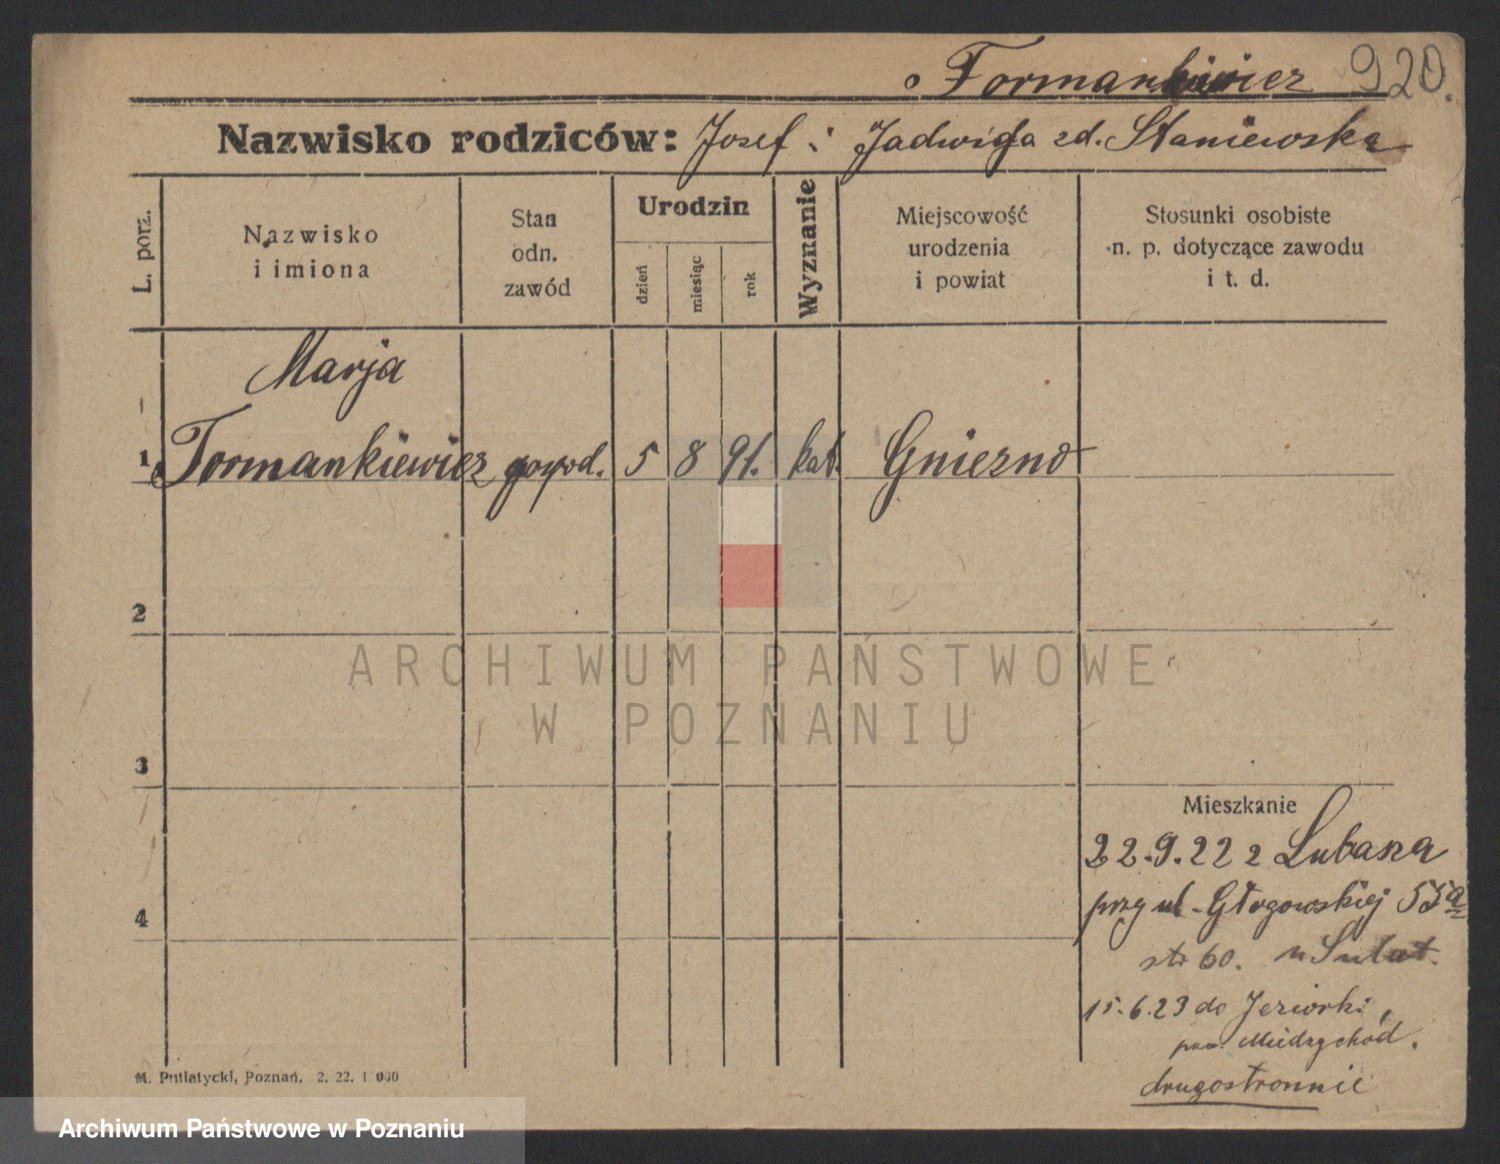 Formankiewicz 920.
Nazwisko rodziców: Josef i Jadwiga zd. Staniewska
L. porz.
Nazwisko
i imiona
Stan
odn.
zawód
Urodzin
dzień
miesiąc
rok
Wyznanie
Miejscowość
urodzenia
i powiat
Stosunki osobiste
n. p. dotyczące zawodu
i t. d.
Marja
1 Formankiewicz gospod. 5 8 91. kat. Gniezno
2
ARCHIWUM PAŃSTWOWE
W POZNANIU
3
Mieszkanie
22.9.22 z Lubasza
przy ul. Głogowskiej 55a
4
str 60. u
15.6.23 do Jeziorki,
pow. Miedzychód.
drugostronnie
M. Putiatycki, Poznań. 2. 22. 1 000
Archiwum Państwowe w Poznaniu